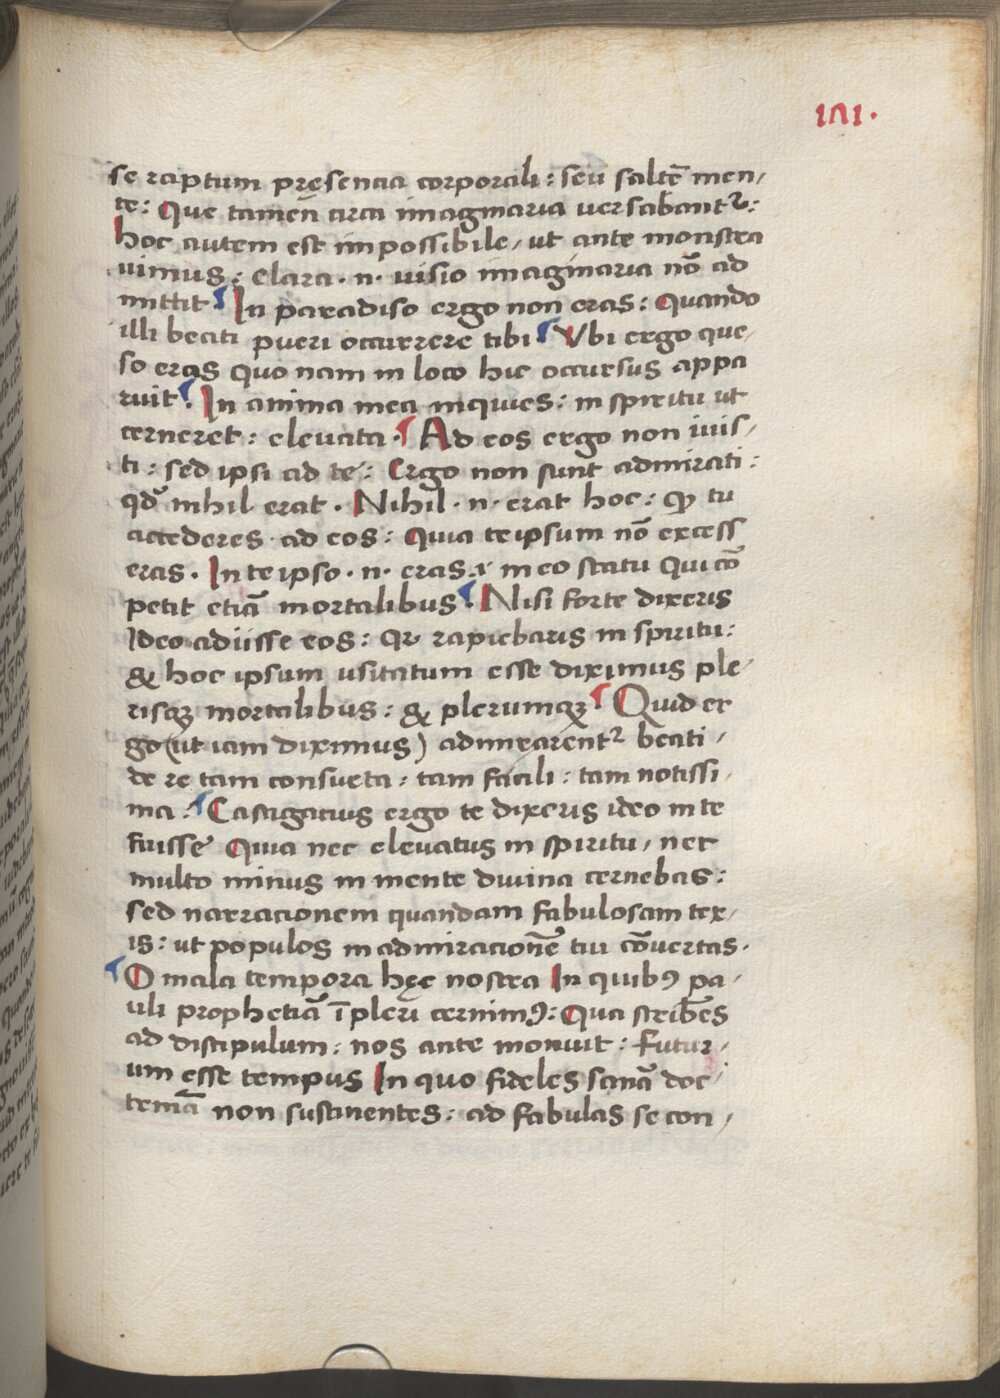 171.
se raptum pręsencia corporali : seu saltē men,
te : Que tamen circa imaginaria versabantᷣ :
hoc autem est impossibile, ut ante monstra
uimus : clara . n . uisio imaginaria nō ad
mittit In paradiso ergo non eras : Quando
illi beati pueri occurrere tibi Vbi ergo que,
so eras quo nam in loco hic occursus appa
ruit . In anima mea inquies : in spiritu ut
cerneret : eleuata . Ad eos ergo non iuis,
ti : sed ipsi ad te : Ergo non sunt admirati :
qd̄ nihil erat . Nihil . n . erat hoc : ꝙ tu
accederes ad eos : Quia te ipsum nō excess
eras . In te ipso . n . eras . & in eo statu Qui cō
petit etiā mortalibus . Nisi forte dixeris
Ideo adiisse eos : Qr rapiebaris in spiritu :
& hoc ipsum usitatum esse diximus ple,
risqꝫ mortalibus : & plerumqꝫ Quid er
go (ut iam diximus) admirarentᷣ beati ,
de re tam consueta : tam facili : tam notissi,
ma : Castigatius ergo te dixeris ideo in te
fuisse Quia nec eleuatus in spiritu, nec
multo minus in mente diuina cernebas :
sed narracionem quandam fabulosam tex,
is : ut populos in admiracionē tui cōuertas .
O mala tempora hęc nostra In quibꝰ pa,
uli prophetiā īpleri cernimꝰ : Qua scribēs
ad discipulum : nos ante monuit : futur,
um esse tempus In quo fideles sanā doc,
trinā non sustinentes : ad fabulas se con,